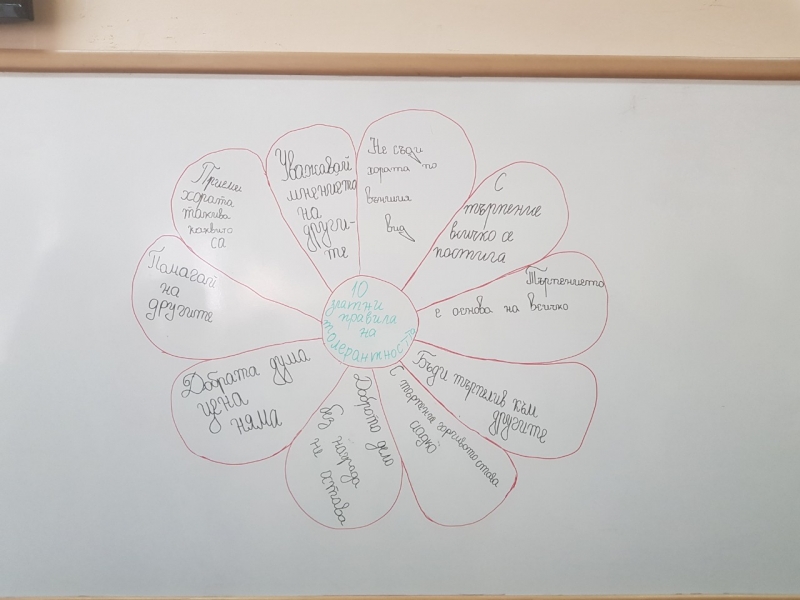 10
златни
правила
на
толерантността
Не съди
хората по
външния
вид
С
търпение
всичко се
постига
Търпението
е основа на всичко
Бъди търпелив към
другите
С търпение горчивото става
сладко
Доброто дело
без награда
не остава
Добрата дума
цена
няма
Помагай
на
другите
Приеми
хората
такива
каквито
са
Уважавай
мнението
на
други-
те